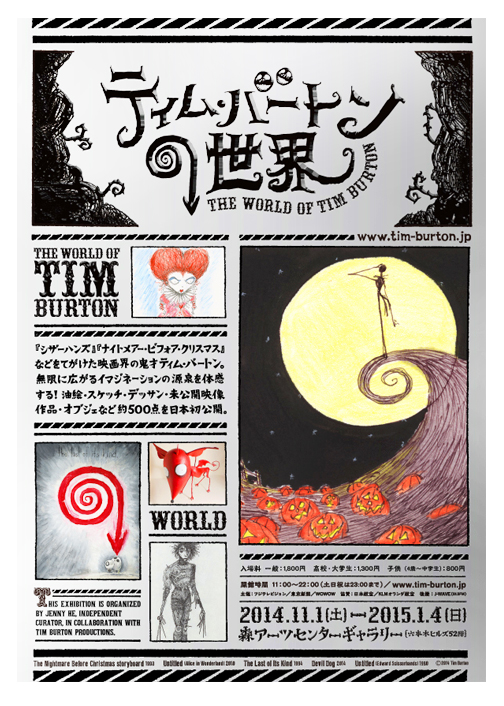 ティム・バートン
の世界
THE WORLD OF TIM BURTON
www.tim-burton.jp
THE WORLD OF
TIM
BURTON
『シザーハンズ』『ナイトメアー・ビフォア・クリスマス』
などをてがけた映画界の鬼才ティム・バートン。
無限に広がるイマジネーションの源泉を体感
する!油絵・スケッチ・デッサン・未公開映像
作品・オブジェなど約500点を日本初公開。
WORLD
THIS EXHIBITION IS ORGANIZED
BY JENNY HE, INDEPENDENT
CURATOR, IN COLLABORATION WITH
TIM BURTON PRODUCTIONS.
入場料 一般:1,800円 高校・大学生:1,300円 子供(4歳〜中学生):800円
開館時間 11:00〜22:00(土日祝は23:00まで)/www.tim-burton.jp
主催:フジテレビジョン/東京新聞/WOWOW 協賛:日本航空/KLMオランダ航空 後援:J-WAVE(81.3FM)
2014.11.1(土)―2015.1.4(日)
森アーツセンターギャラリー(六本木ヒルズ52階)
The Nightmare Before Christmas storyboard 1993 Untitled (Alice in Wonderland) 2010 The Last of Its Kind 1994 Devil Dog 2014 Untitled (Edward Scissorhands) 1990 ©2014 Tim Burton